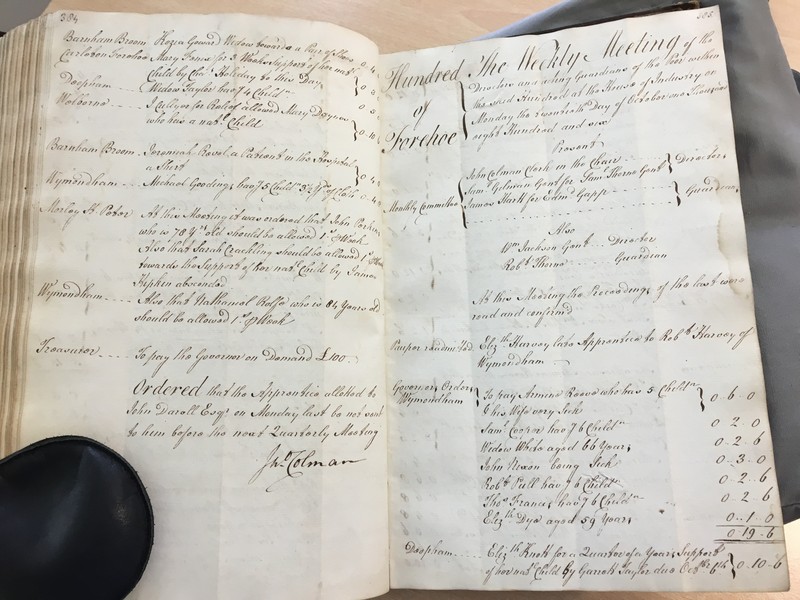 384
Barnham Broom Hozea Goward Widow towards a Pair of Shoes
Carleton Forehoe Mary Fons for 3 Weeks Support of her natl
Child by Chas Holiday to this Day
Deopham Widow Taylor has 4 Childn
Welborne J Cullyer for Relief allowed Mary
who has a natl Child
Barnham Broom Jeremiah Revet a Patient in the Hospital
a Shirt
Wymondham Michael Gooding has 5 Childn 3½ yds of Cloth
Morley St Peter At this Meeting it was ordered that John Parker
who is 70 Yrs old should be allowed 1s P Week
Also that Sarah Crackling should be allowed 1s P Week
towards the Support of her natl Child by James
Kephen absconded
Wymondham Also that Nathanial Rolfe who is 84 Years old
should be allowed 1s P Week
Treasurer To pay the Governor on Demand £100
Ordered that the Apprentice allotted to
John Darell Esqr on Monday last be not sent
to him before the next Quarterly Meeting
Jno Colman
385
Hundred of Forehoe
The Weekly Meeting of the
Directors and acting Guardians of the Poor within
the said Hundred at the House of Industry on
Monday the twentieth Day of October one Thousand
eight Hundred and six
Present
John Colman Clerk in the Chair
Saml Gilman Gent for Saml Thorne Gent Directors
Monthly Committee James Hartt for Edmd Gapp Guardian
Also
Wm Jackson Gent Director
Robt Thorne Guardian
At this Meeting the Proceedings of the last were
read and confirmd
Pauper readmitted Elizth Harvey late Apprentice to Robt Harvey of
Wymondham
Governors Orders
Wymondham To pay Armine Reeve who has 5 Childn
& his Wife very Sick 0 6 0
Saml Cooper has 7 6 Childn 0 2 0
Widow White aged 66 Years 0 2 6
John Nixon being Sick 0 3 0
Robt Pull has 7 6 Childn 0 2 6
Thos Francis has 7 6 Childn 0 2 6
Elizth Dye aged 59 Years 0 1 0
0 19 6
Deopham Elizth Knott for a Quarter of a Years Support
of her natl Child by Garrett Taylor due Octbr 6th 0 10 6